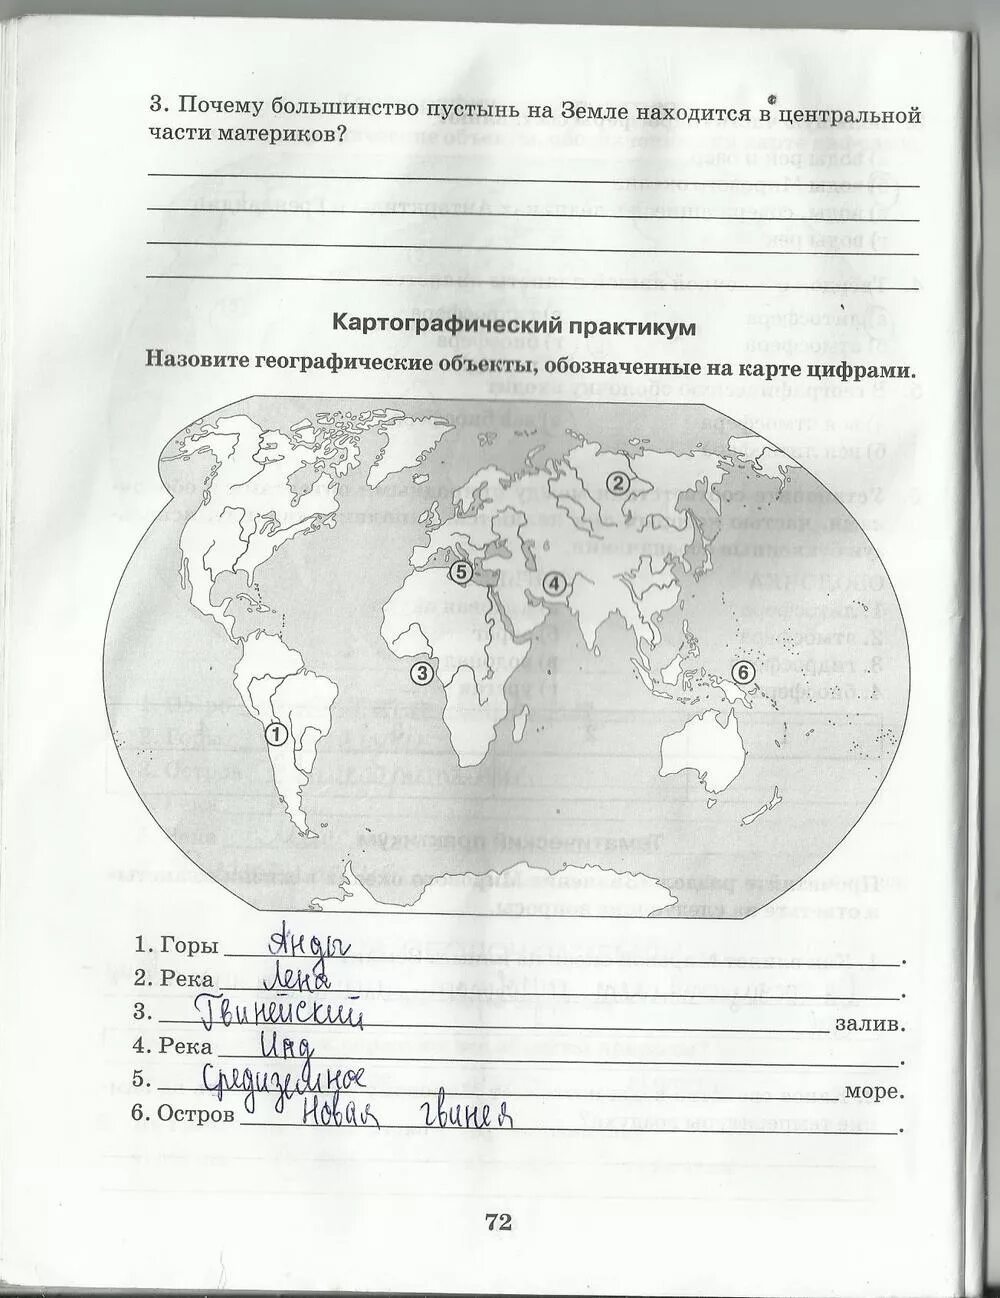 3. Почему большинство пустынь на Земле находится в центральной
части материков?
Картографический практикум
Назовите географические объекты, обозначенные на карте цифрами.
2
5
4
3
6
1
1. Горы Анды.
2. Река Лена.
3. Гвинейский залив.
4. Река Инд.
5. Средиземное море.
6. Остров Новая гвинея.
72